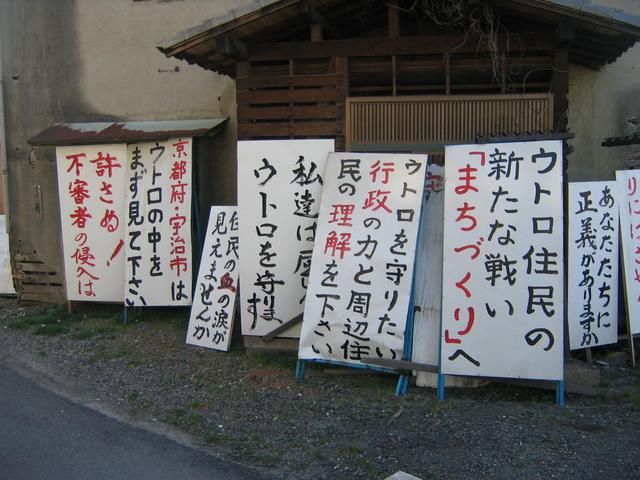 許さぬ!
不審者の侵入は
京都府・宇治市は
ウトロの中を
まず見て下さい
住民の血の涙が
見えませんか
私達は
ウトロを守ります
ウトロを守りたい
行政の力と周辺住
民の理解を下さい
ウトロ住民の
新たな戦い
「まちづくり」へ
あなたたちに
正義がありますか